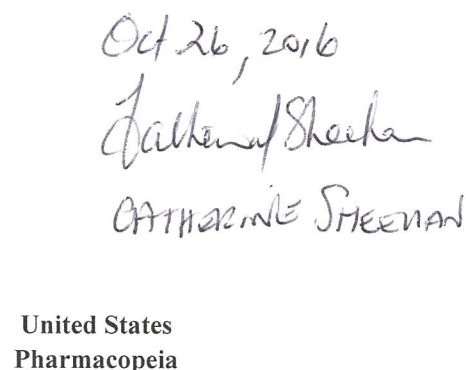 Oct 26, 2016
Catherine Sheehan
CATHERINE SHEEHAN
United States
Pharmacopeia